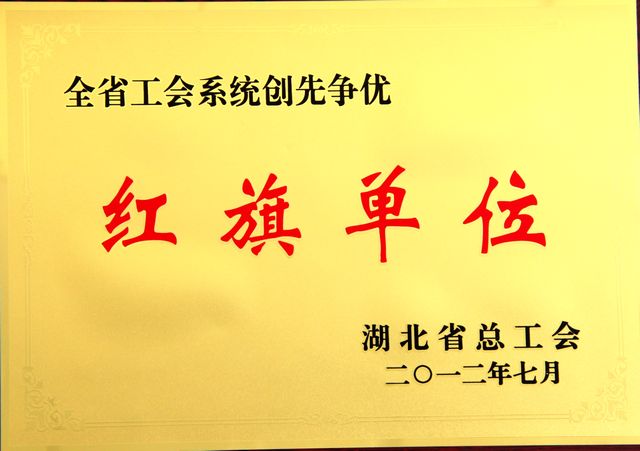 全省工会系统创先争优
红旗单位
湖北省总工会
二〇一二年七月